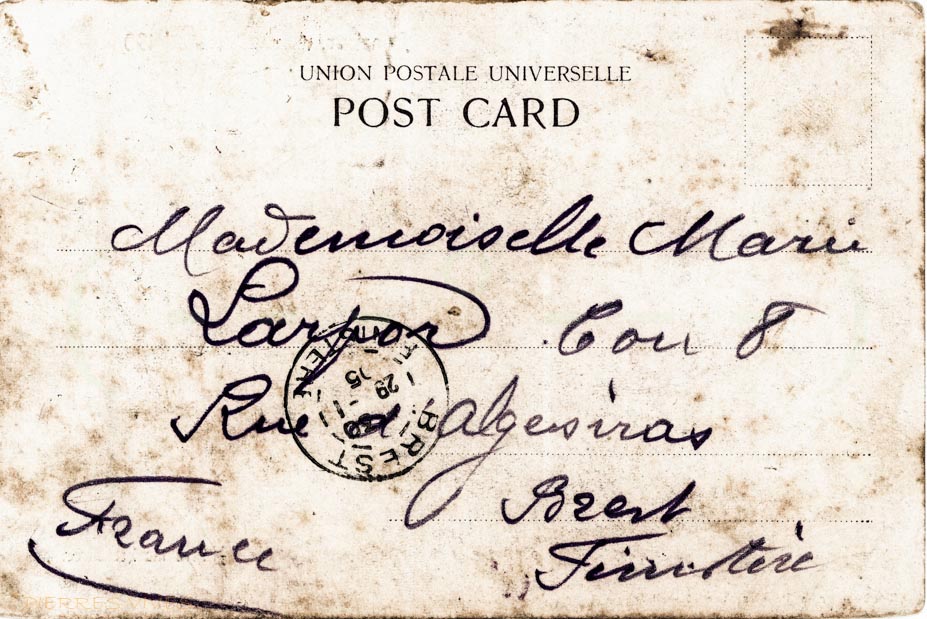 UNION POSTALE UNIVERSELLE
POST CARD
Mademoiselle Marie
Larpor 8
Rue d'Algesiras
Brest
Finistère
France
BREST
FINISTERE
29